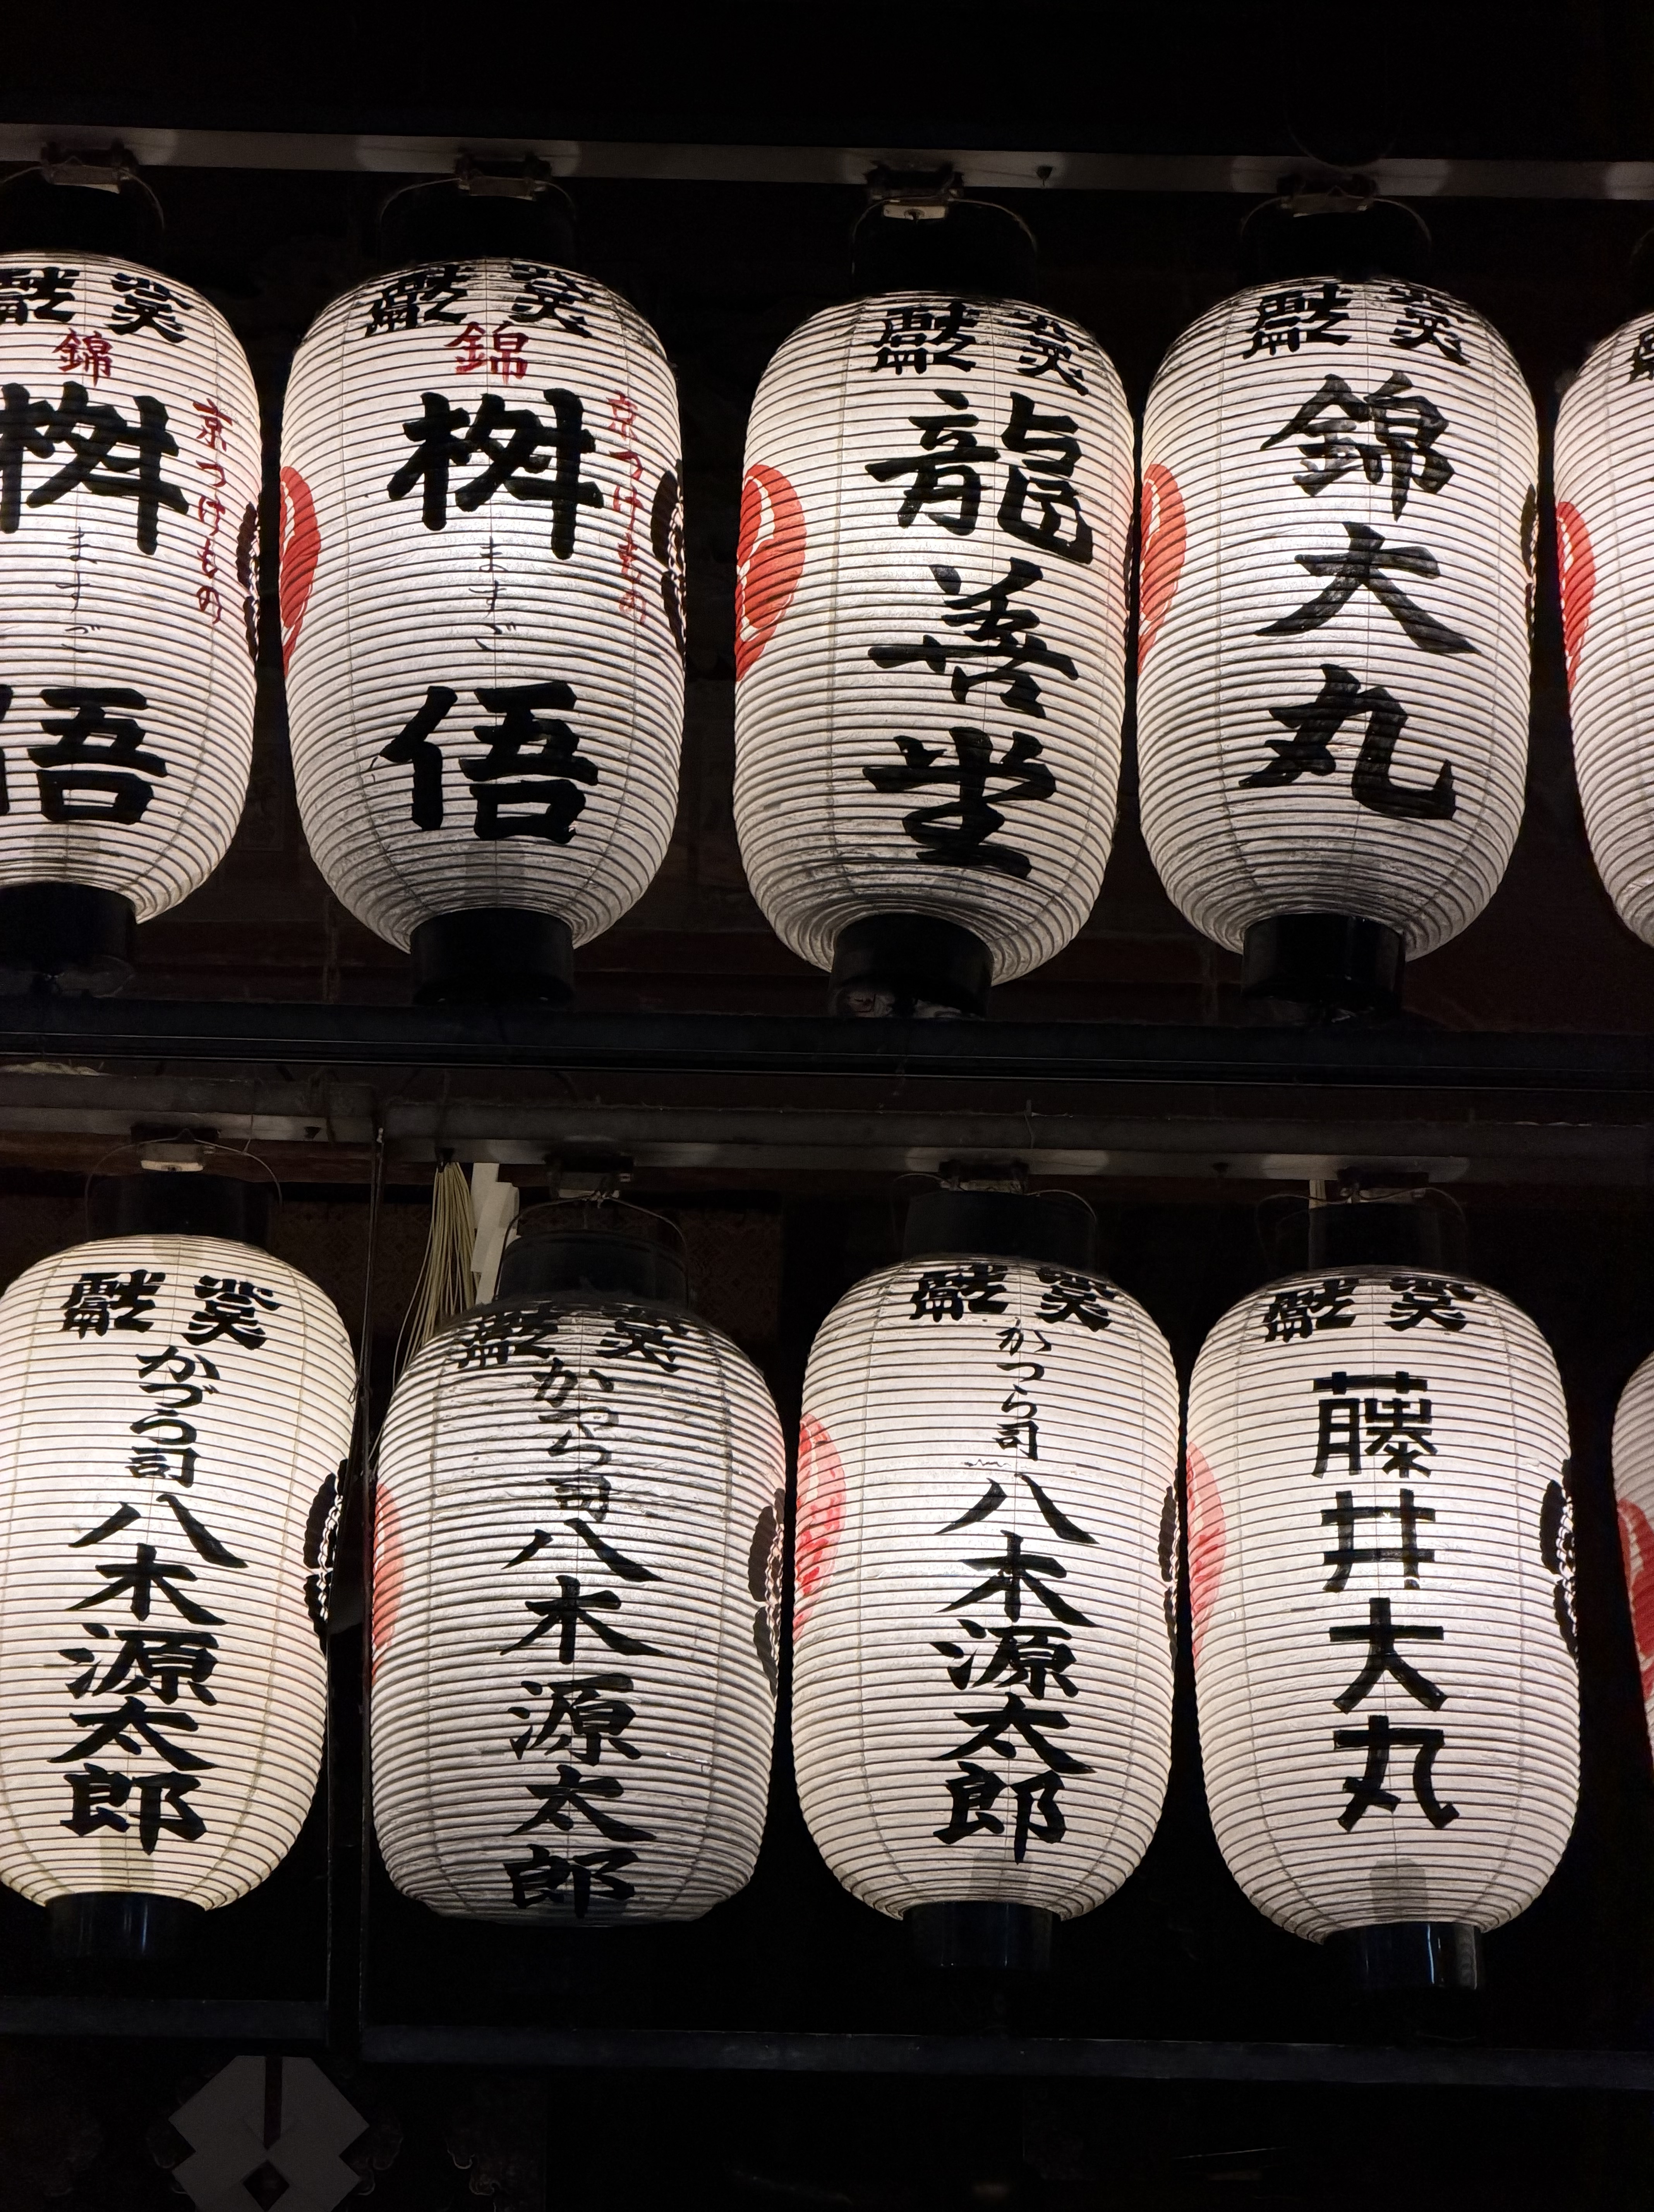 奉獻
錦
京つけもの
桝
ますご
悟
奉獻
錦
京つけもの
桝
ますご
悟
奉獻
龍善堂
奉獻
錦大丸
奉獻
かづら司
八木源太郎
奉獻
かつら司
八木源太郎
奉獻
かつら司
八木源太郎
奉獻
藤井大丸